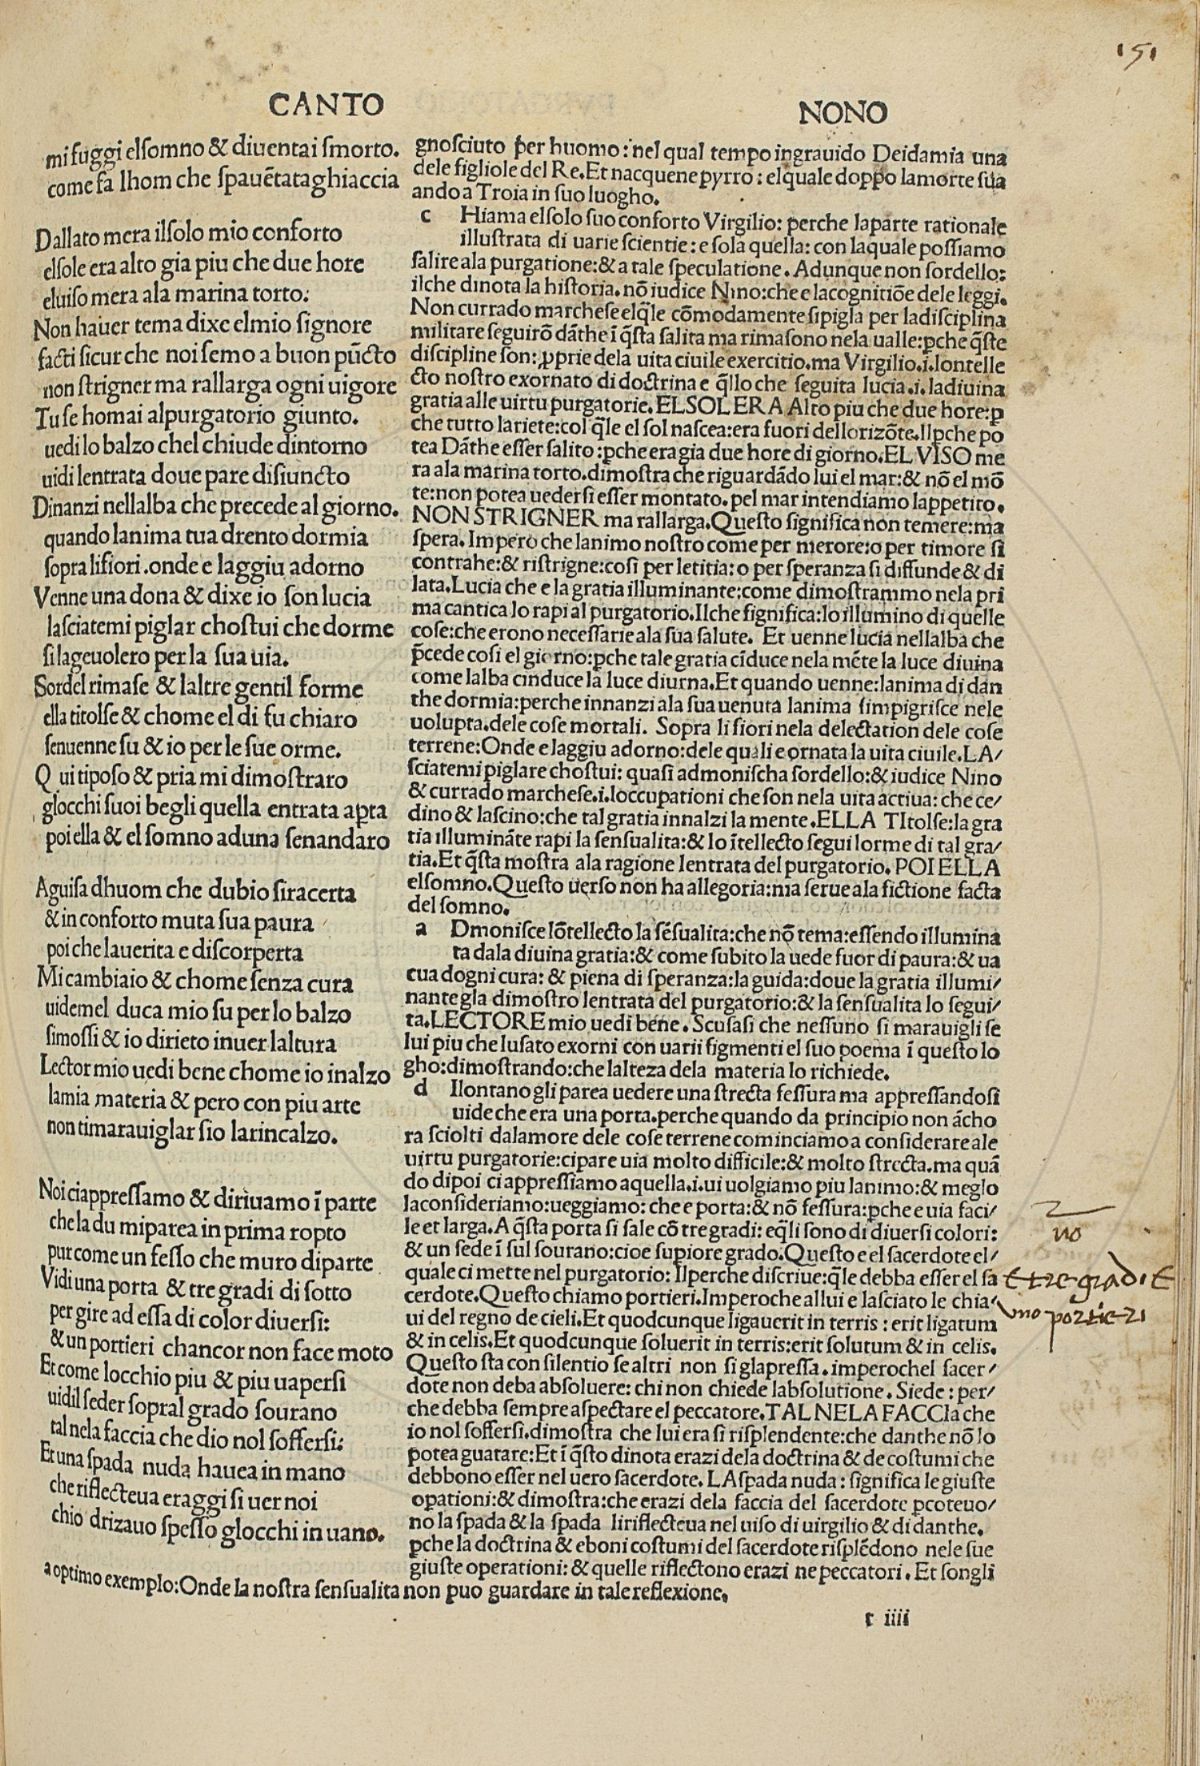 151
CANTO NONO
mi fuggi elſomno & diuentai ſmorto.
come fa lhom che ſpauẽtata ghiaccia
Dallato mera ilſolo mio conforto
elſole era alto gia piu che due hore
eluiſo mera ala marina torto:
Non hauer tema dixe elmio ſignore
facti ſicur che noi ſemo a buon pũcto
non ſtrigner ma rallarga ogni uigore
Tu ſe homai alpurgatorio giunto.
uedi lo balzo chel chiude dintorno
uidi lentrata doue pare diſiuncto
Dinanzi nellalba che precede al giorno.
quando lanima tua drento dormia
ſopra lifiori .onde e laggiu adorno
Venne una dona & dixe io ſon lucia
laſciatemi piglar choſtui che dorme
ſi lageuolero per la ſua uia.
Sordel rimaſe & laltre gentil forme
ella titolſe & chome el di fu chiaro
ſenuenne ſu & io per le ſue orme.
Q ui tipoſo & pria mi dimoſtraro
glocchi ſuoi begli quella entrata apta
poi ella & el ſomno aduna ſenandaro
Aguiſa dhuom che dubio ſiracerta
& in conforto muta ſua paura
poi che lauerita e diſcorperta
Mi cambiaio & chome ſenza cura
uidemel duca mio ſu per lo balzo
ſimoſſi & io dirieto inuer laltura
Lector mio uedi bene chome io inalzo
lamia materia & pero con piu arte
non timarauiglar ſio larincalzo.
Noi ciappreſſamo & diriuamo ĩ parte
che la du miparea in prima ropto
pur come un feſſo che muro diparte
Vidi una porta & tre gradi di ſotto
per gire ad eſſa di color diuerſi:
& un portieri chancor non face moto
Et come locchio piu & piu uaperſi
uidil ſeder ſopral grado ſourano
tal nela faccia che dio nol ſofferſi:
Et una ſpada nuda hauea in mano
che riflecteua eraggi ſi uer noi
chio drizauo ſpeſſo glocchi in uano.
gnoſciuto per huomo: nel qual tempo ingrauido Deidamia una
dele figliole del Re. Et nacquene pyrro: elquale doppo lamorte ſua
ando a Troia in ſuo luogho.
c Hiama elſolo ſuo conforto Virgilio: perche laparte rationale
illuſtrata di uarie ſcientie: e ſola quella: con laquale poſſiamo
ſalire ala purgatione: & a tale ſpeculatione. Adunque non ſordello:
ilche dinota la hiſtoria. nõ iudice Nino: che e lacognitiõe dele leggi.
Non currado marcheſe elq̃le cõmodamente ſipigla per ladiſciplina
militare ſeguirõ dãthe ĩ q̃ſta ſalita ma rimaſono nela ualle: ꝑche q̃ſte
diſcipline ſon: ꝓprie dela uita ciuile exercitio. ma Virgilio .i. lontelle
cto noſtro exornato di doctrina e q̃llo che ſeguita lucia .i. ladiuina
gratia alle uirtu purgatorie. EL SOL ERA Alto piu che due hore: ꝑ
che tutto lariete: col q̃le el ſol naſcea: era fuori dellorizõte. Ilꝑche po
tea Dãthe eſſer ſalito: ꝑche era gia due hore di giorno. EL VISO me
ra ala marina torto. dimoſtra che riguardãdo lui el mar: & nõ el mõ
te: non potea uederſi eſſer montato. pel mar intendiamo lappetito.
NON STRIGNER ma rallarga. Queſto ſignifica non temere: ma
ſpera. Impero che lanimo noſtro come per merore: o per timore ſi
contrahe: & riſtrigne: coſi per letitia: o per ſperanza ſi diffunde & di
lata. Lucia che e la gratia illuminante: come dimoſtrammo nela pri
ma cantica lo rapi al purgatorio. Ilche ſignifica: lo illumino di quelle
coſe: che erono neceſſarie ala ſua ſalute. Et uenne lucia nellalba che
p̃cede coſi el giorno: ꝑche tale gratia cĩduce nela mẽte la luce diuina
come lalba cinduce la luce diurna. Et quando uenne: lanima di dãn
the dormia: perche innanzi ala ſua uenuta lanima ſimpigriſce nele
uolupta. dele coſe mortali. Sopra li fiori nela delectation dele coſe
terrene: Onde e laggiu adorno: dele quali e ornata la uita ciuile. LA/
ſciatemi piglare choſtui: quaſi admoniſcha ſordello: & iudice Nino
& currado marcheſe .i. loccupationi che ſon nela uita actiua: che ce/
dino & laſcino: che tal gratia innalzi la mente. ELLA TItolſe: la gra
tia illuminãte rapi la ſenſualita: & lo ĩtellecto ſegui lorme di tal gra/
tia. Et q̃ſta moſtra ala ragione lentrata del purgatorio. POI ELLA
elſomno. Queſto uerſo non ha allegoria: ma ſerue ala fictione facta
del ſomno.
a Dmoniſce lõtellecto la ſẽſualita: che nõ tema: eſſendo illumina
ta dala diuina gratia: & come ſubito la uede fuor di paura: & ua
cua dogni cura: & piena di ſperanza: la guida: doue la gratia illumi/
nante gla dimoſtro lentrata del purgatorio: & la ſenſualita lo ſegui/
ta. LECTORE mio uedi bene. Scuſaſi che neſſuno ſi marauigli ſe
lui piu che luſato exorni con uarii figmenti el ſuo poema ĩ queſto lo
gho: dimoſtrando: che lalteza dela materia lo richiede.
d Ilontano gli parea uedere una ſtrecta feſſura ma appreſſandoſi
uide che era una porta. perche quando da principio non ãcho
ra ſciolti dalamore dele coſe terrene cominciamo a conſiderare ale
uirtu purgatorie: cipare uia molto difficile: & molto ſtrecta. ma quã
do dipoi ci appreſſiamo aquella .i. ui uolgiamo piu lanimo: & meglo
laconſideriamo: ueggiamo: che e porta: & nõ feſſura: ꝑche e uia faci/
le et larga. A q̃ſta porta ſi ſale cõ tre gradi: eq̃li ſono di diuerſi colori:
& un ſede ĩ ſul ſourano: cioe ſupiore grado. Queſto e el ſacerdote el/
quale ci mette nel purgatorio: Ilperche diſcriue: q̃le debba eſſer el ſa
cerdote. Queſto chiamo portieri. Imperoche allui e laſciato le chia/
ui del regno de cieli. Et quodcunque ligauerit in terris: erit ligatum
& in celis. Et quodcunque ſoluerit in terris: erit ſolutum & in celis.
Queſto ſta con ſilentio ſe altri non ſi glapreſſa. imperochel ſacer/
dote non deba abſoluere: chi non chiede labſolutione. Siede: per/
che debba ſempre aſpectare el peccatore. TAL NELA FACCIa che
io nol ſofferſi. dimoſtra che lui era ſi riſplendente: che danthe nõ lo
potea guatare: Et ĩ q̃ſto dinota erazi dela doctrina & de coſtumi che
debbono eſſer nel uero ſacerdote. LA ſpada nuda: ſignifica le giuſte
opationi: & dimoſtra: che erazi dela faccia del ſacerdote ꝑcoteuo/
no la ſpada & la ſpada liriflecteua nel uiſo di uirgilio & di danthe.
ꝑche la doctrina & eboni coſtumi del ſacerdote riſplẽdono nele ſue
giuſte operationi: & quelle riflectono erazi ne peccatori. Et ſongli
a optimo exemplo: Onde la noſtra ſenſualita non puo guardare in tale reflexione.
r iiii
uo
E tre gradi E
mo portieri